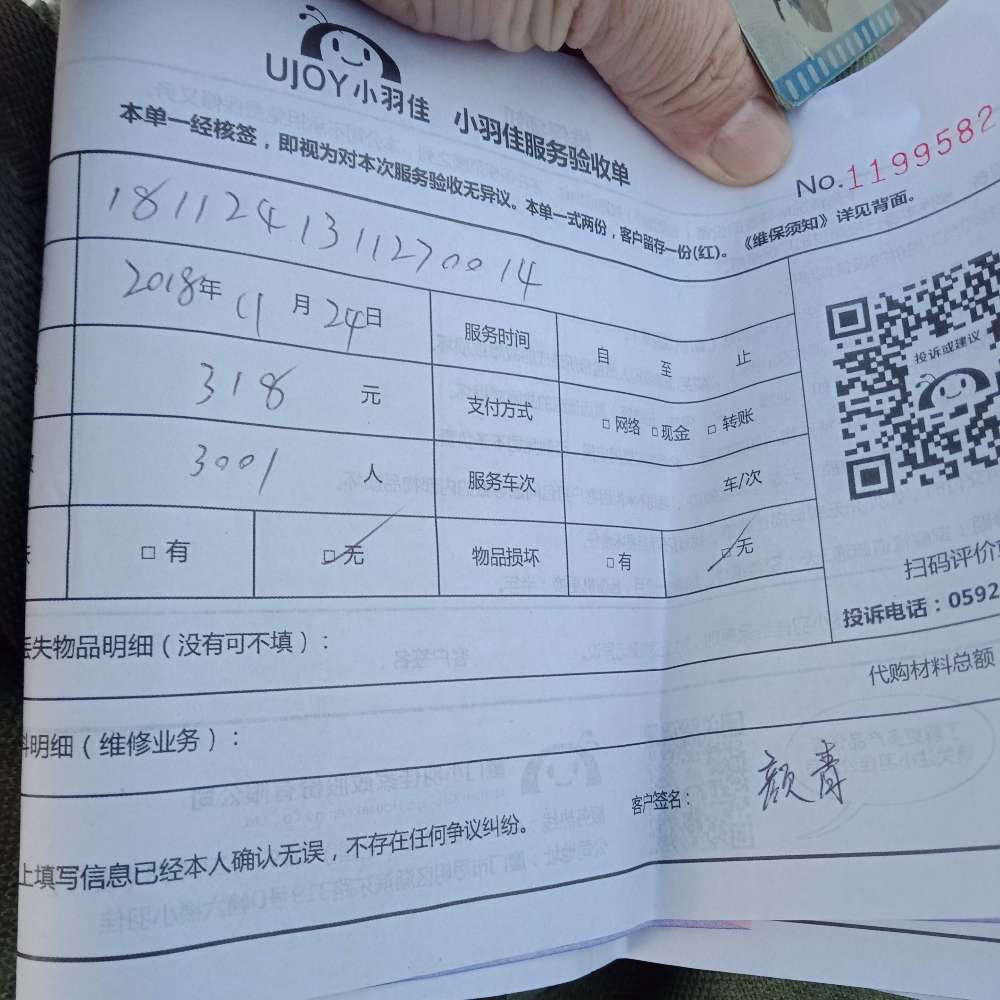 UJOY小羽佳 小羽佳服务验收单
No.1199582
本单一经核签，即视为对本次服务验收无异议。本单一式两份，客户留存一份(红)。《维保须知》详见背面。
1811241311270014
2018年 11月 24日 服务时间 自 至 止
318 元 支付方式 □ 网络 □ 现金 □ 转账
3001 人 服务车次 车/次
□ 有 □ 无 物品损坏 □ 有 □ 无
投诉或建议
扫码评价
投诉电话：0592
失物品明细（没有可不填）：
代购材料总额
明细（维修业务）：
客户签名： 颜青
上填写信息已经本人确认无误，不存在任何争议纠纷。